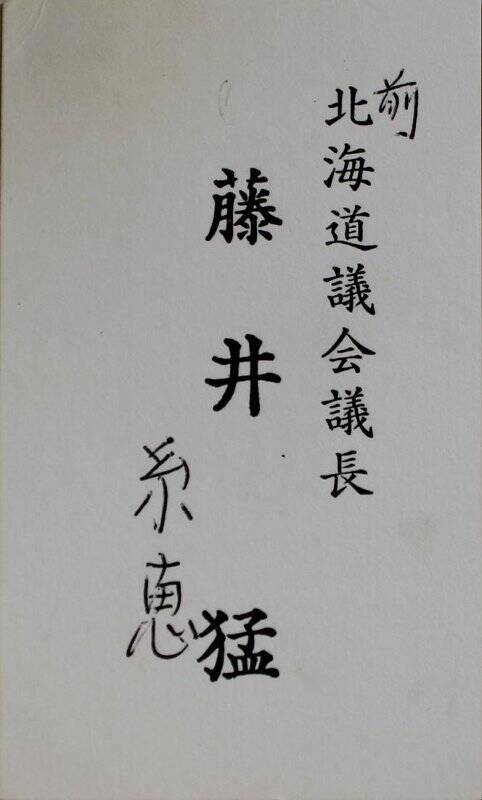 前
北海道議会議長
藤井 猛
糸恵